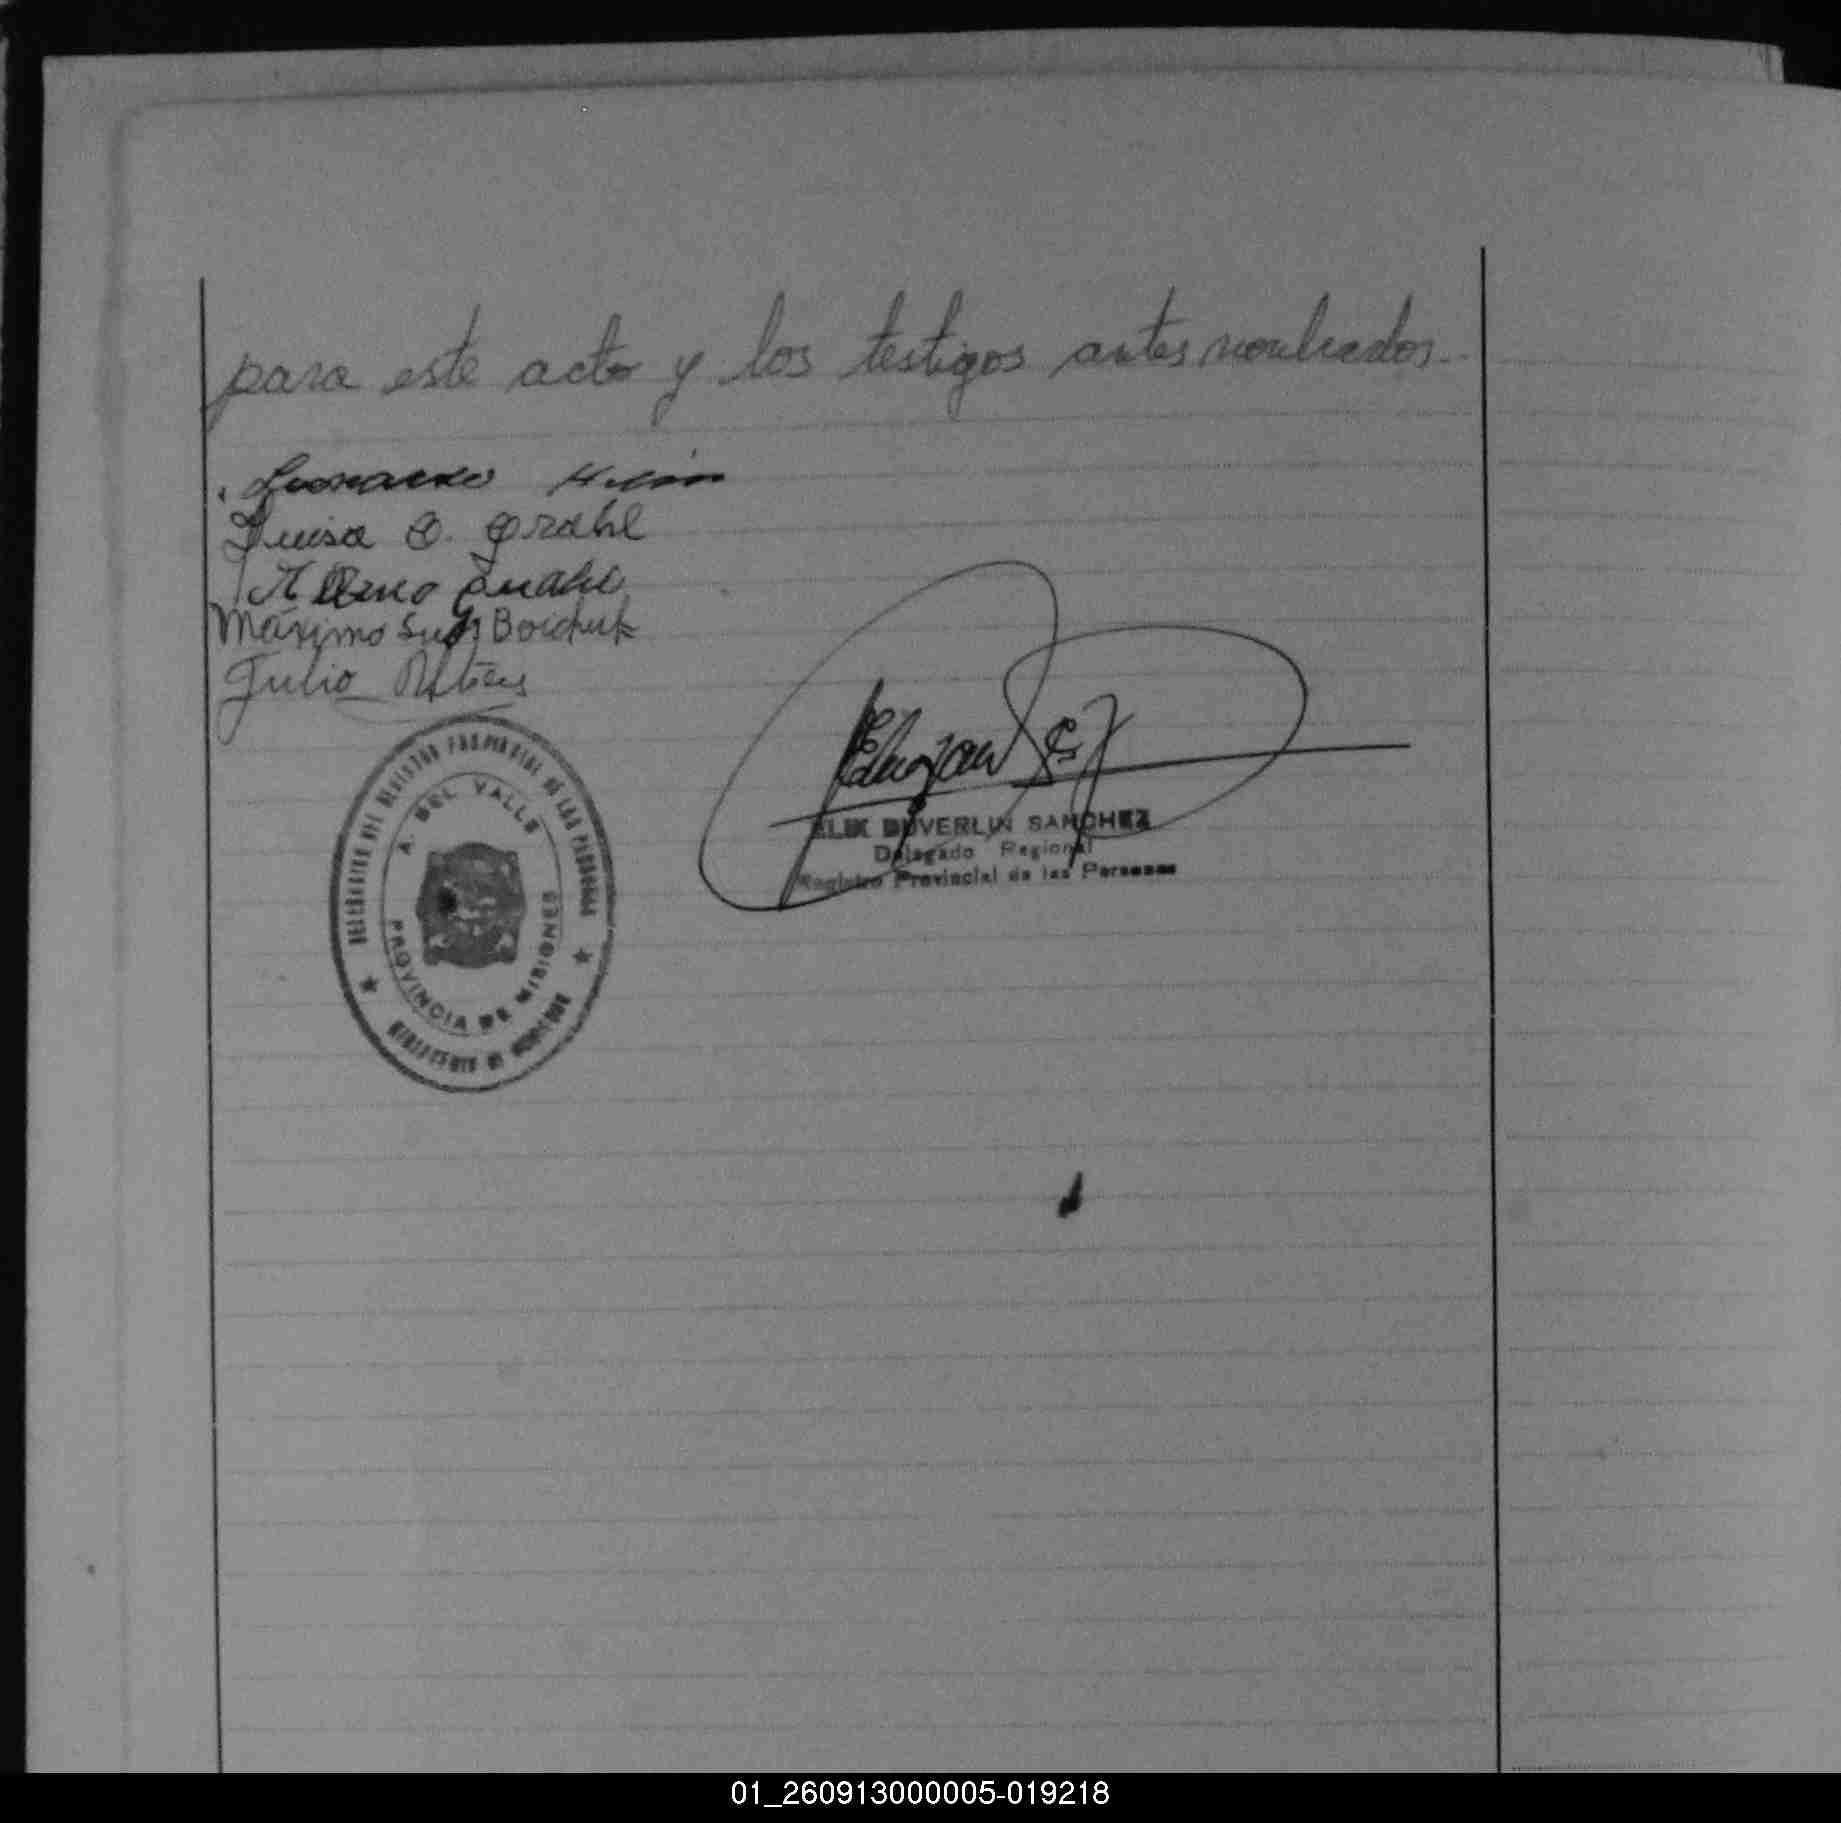 para este acto y los testigos antes nombrados.-
Luisa C. Grahl
Máximo Boichuk
Julio
DELEGACION DEL REGISTRO PROVINCIAL DE LAS PERSONAS
A. DEL VALLE
PROVINCIA DE MISIONES
DUVERLIN SANCHEZ
Delegado Regional
Registro Provincial de las Personas
01_260913000005-019218